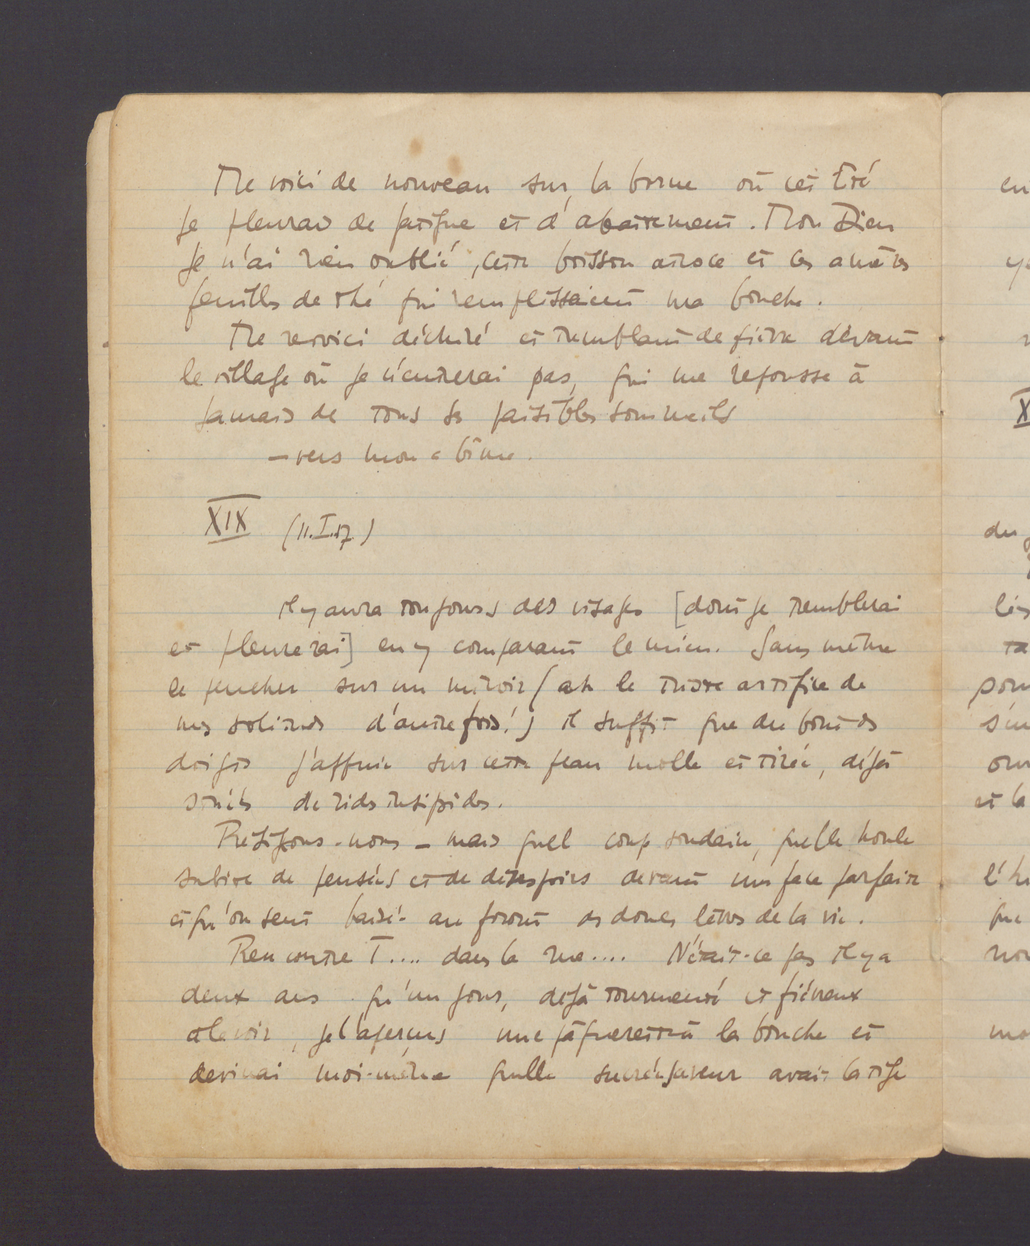 Me voici de nouveau sur la borne où cet Eté
je pleurais de fatigue et d'abattement. Mon Dieu
je n'ai rien oublié, cette boisson atroce et les amères
feuilles de thé qui remplissaient ma bouche.
Me revoici déchiré et tremblant de fièvre devant
le village où je n'entrerai pas, qui me repousse à
jamais de tous ses paisibles sommeils
— vers mon abîme.
XIX (11.I.17)
Il y aura toujours des visages [dont je tremblerai
et pleurerai] en y comparant le mien. Sans même
se pencher sur un miroir (ah le triste artifice de
mes solitudes d'autrefois!) il suffit que du bout des
doigts j'appuie sur cette peau molle et tirée, déjà
striée de rides insipides.
Résignons-nous — mais quel coup soudain, quelle houle
subite de pensées et de désespoirs devant une face parfaite
et qu'on sent baisée au front des douces lèvres de la vie.
Rencontre T.... dans la rue.... N'était-ce pas il y a
deux ans qu'un jour, déjà tourmenté et fiévreux
à le voir, je l'aperçus une pâquerette à la bouche et
devinai moi-même quelle sucrée saveur avait la tige
en
X
du
pour
et la
que